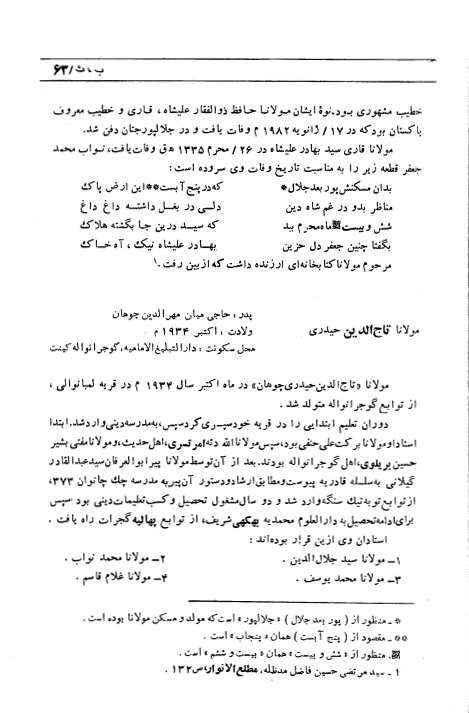 ب ، ث / ۶۳
خطیب مشهوری بود. نوهٔ ایشان مولانا حافظ ذوالفقار علیشاه، قاری و خطیب معروف
پاکستان بود که در ۱۷/ ژانویه ۱۹۸۲ م وفات یافت و در جلالپورجتان دفن شد.
مولانا قاری سید بهادر علیشاه در ۲۶/ محرم ۱۳۳۵ هـ ق وفات یافت، نواب محمد
جعفر قطعه زیر را به مناسبت تاریخ وفات وی سروده است:
بدان مسکنش پور بعد جلال* که در پنج آبست** این ارض پاک
مناظر بدو در غم شاه دین دلی در بغل داشته داغ داغ
شش و بیست▩ ماه محرم بد که سید درین جا بگشته هلاک
بگفتا چنین جعفر دل حزین بهادر علیشاه نیک، آه خاک
مرحوم مولانا کتابخانه‌ای ارزنده داشت که از بین رفت.۱
پدر: حاجی میان مهرالدین چوهان
مولانا تاج‌الدین حیدری ولادت: اکتبر ۱۹۳۴ م
محل سکونت: دارالتبلیغ الامامیه، گوجرانواله کینت
مولانا «تاج‌الدین حیدری چوهان» در ماه اکتبر سال ۱۹۳۴ م در قریه لمبانوالی،
از توابع گوجرانواله متولد شد.
دوران تعلیم ابتدایی را در قریه خود سپری کرد سپس، به مدرسه دینی وارد شد. ابتدا
استاد او مولانا برکت علی حنفی بود، سپس مولانا الله دته امرتسری، اهل حدیث، و مولانا مفتی بشیر
حسین بریلوی، اهل گوجرانواله بودند. بعد از آن توسط مولانا پیر ابوالعرفان سید عبدالقادر
گیلانی به سلسله قادریه پیوست و مطابق ارشاد و دستور آن پیر به مدرسه چک چانوان ۳۷۳،
از توابع توبه تیک سنگه وارد شد و دو سال مشغول تحصیل و کسب تعلیمات دینی بود سپس
برای ادامه تحصیل به دارالعلوم محمدیه بهکهی شریف، از توابع پهالیه گجرات راه یافت.
استادان وی از این قرار بوده‌اند:
۱ـ مولانا سید جلال‌الدین. ۲ـ مولانا محمد نواب.
۳ـ مولانا محمد یوسف. ۴ـ مولانا غلام قاسم.
* ـ منظور از ( پور بعد جلال ) « جلالپور » است که مولد و مسکن مولانا بوده است.
** ـ مقصود از ( پنج آبست ) همان « پنجاب » است.
▩. منظور از « شش و بیست » همان « بیست و ششم » است.
۱ ـ سید مرتضی حسین فاضل مدظله، مطلع الانوار، ص ۱۳۲.